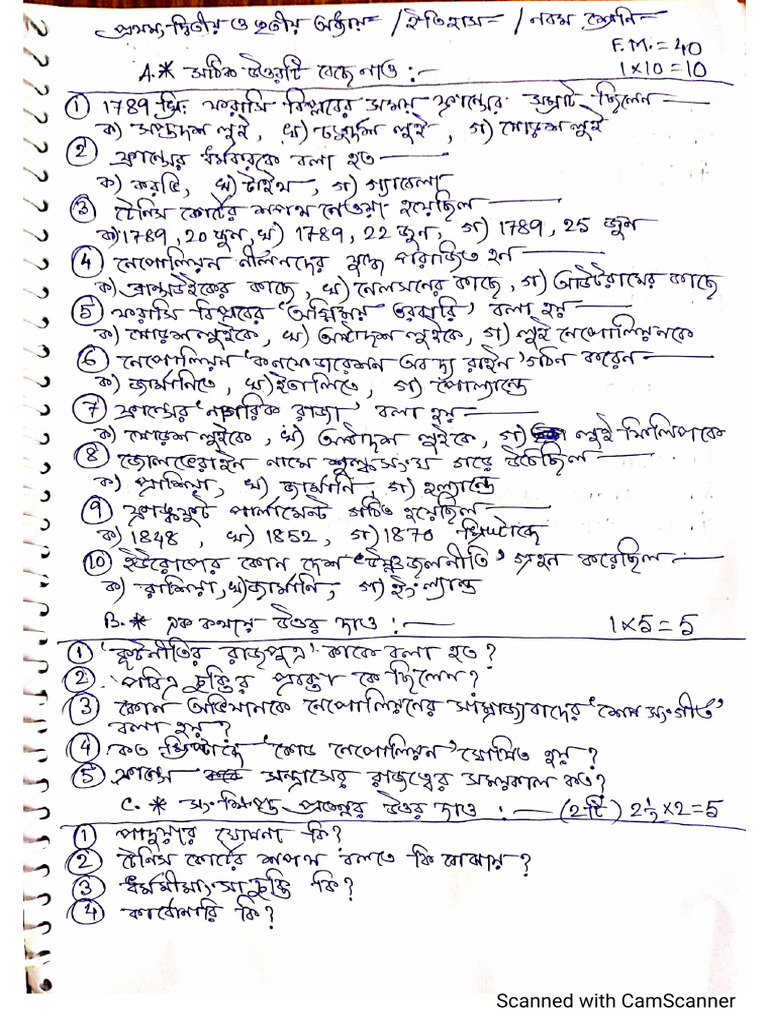 প্রথম, দ্বিতীয় ও তৃতীয় অধ্যায় / ইতিহাস / নবম শ্রেনি
F.M. = 40
A.* সঠিক উত্তরটি বেছে নাও :— 1×10=10
① 1789 খ্রি: ফরাসি বিপ্লবের সময় ফ্রান্সের সম্রাট ছিলেন —
ক) সপ্তদশ লুই, খ) চতুর্দশ লুই, গ) ষোড়শ লুই
② ফ্রান্সের ধর্মকরকে বলা হত —
ক) করভি, খ) টাইদ, গ) গ্যাবেলা
③ টেনিস কোর্টের শপথ নেওয়া হয়েছিল —
ক) 1789, 20 জুন, খ) 1789, 22 জুন, গ) 1789, 25 জুন
④ নেপোলিয়ন নীলনদের যুদ্ধে পরাজিত হন —
ক) ব্রান্সউইকের কাছে, খ) নেলসনের কাছে, গ) আউটরামের কাছে
⑤ ফরাসি বিপ্লবের 'অগ্নিময় তরবারি' বলা হয় —
ক) ষোড়শ লুইকে, খ) অষ্টাদশ লুইকে, গ) লুই নেপোলিয়নকে
⑥ নেপোলিয়ন 'কনফেডারেশন অব দ্য রাইন' গঠন করেন —
ক) জার্মানিতে, খ) ইতালিতে, গ) পোল্যান্ডে
⑦ ফ্রান্সের 'নাগরিক রাজা' বলা হয় —
ক) ষোড়শ লুইকে, খ) অষ্টাদশ লুইকে, গ) লুই ফিলিপকে
⑧ জোলভেরাইন নামে শুল্কসংঘ গড়ে উঠেছিল —
ক) প্রাশিয়া, খ) জার্মানি, গ) হল্যান্ডে
⑨ ফ্রাঙ্কফুর্ট পার্লামেন্ট গঠিত হয়েছিল —
ক) 1848, খ) 1852, গ) 1870 খ্রিস্টাব্দে
⑩ ইউরোপের কোন দেশ 'উষ্ণ জলনীতি' গ্রহন করেছিল —
ক) রাশিয়া, খ) জার্মানি, গ) ইংল্যান্ড
B.* এক কথায় উত্তর দাও :— 1×5=5
① 'কূটনীতির রাজপুত্র' কাকে বলা হত ?
② পবিত্র চুক্তির প্রবক্তা কে ছিলেন ?
③ কোন অভিযানকে নেপোলিয়নের সাম্রাজ্যবাদের 'শেষ সংগীত'
বলা হয় ?
④ কত খ্রিস্টাব্দে 'কোড নেপোলিয়ন' ঘোষিত হয় ?
⑤ ফ্রান্সে সন্ত্রাসের রাজত্বের সময়কাল কত ?
C.* সংক্ষিপ্ত প্রশ্নের উত্তর দাও :— (2টি) 2½×2=5
① পাদুয়ার ঘোষনা কি ?
② টেনিস কোর্টের শপথ বলতে কি বোঝায় ?
③ ধর্মমীমাংসা চুক্তি কি ?
④ কার্বোনারি কি ?
Scanned with CamScanner